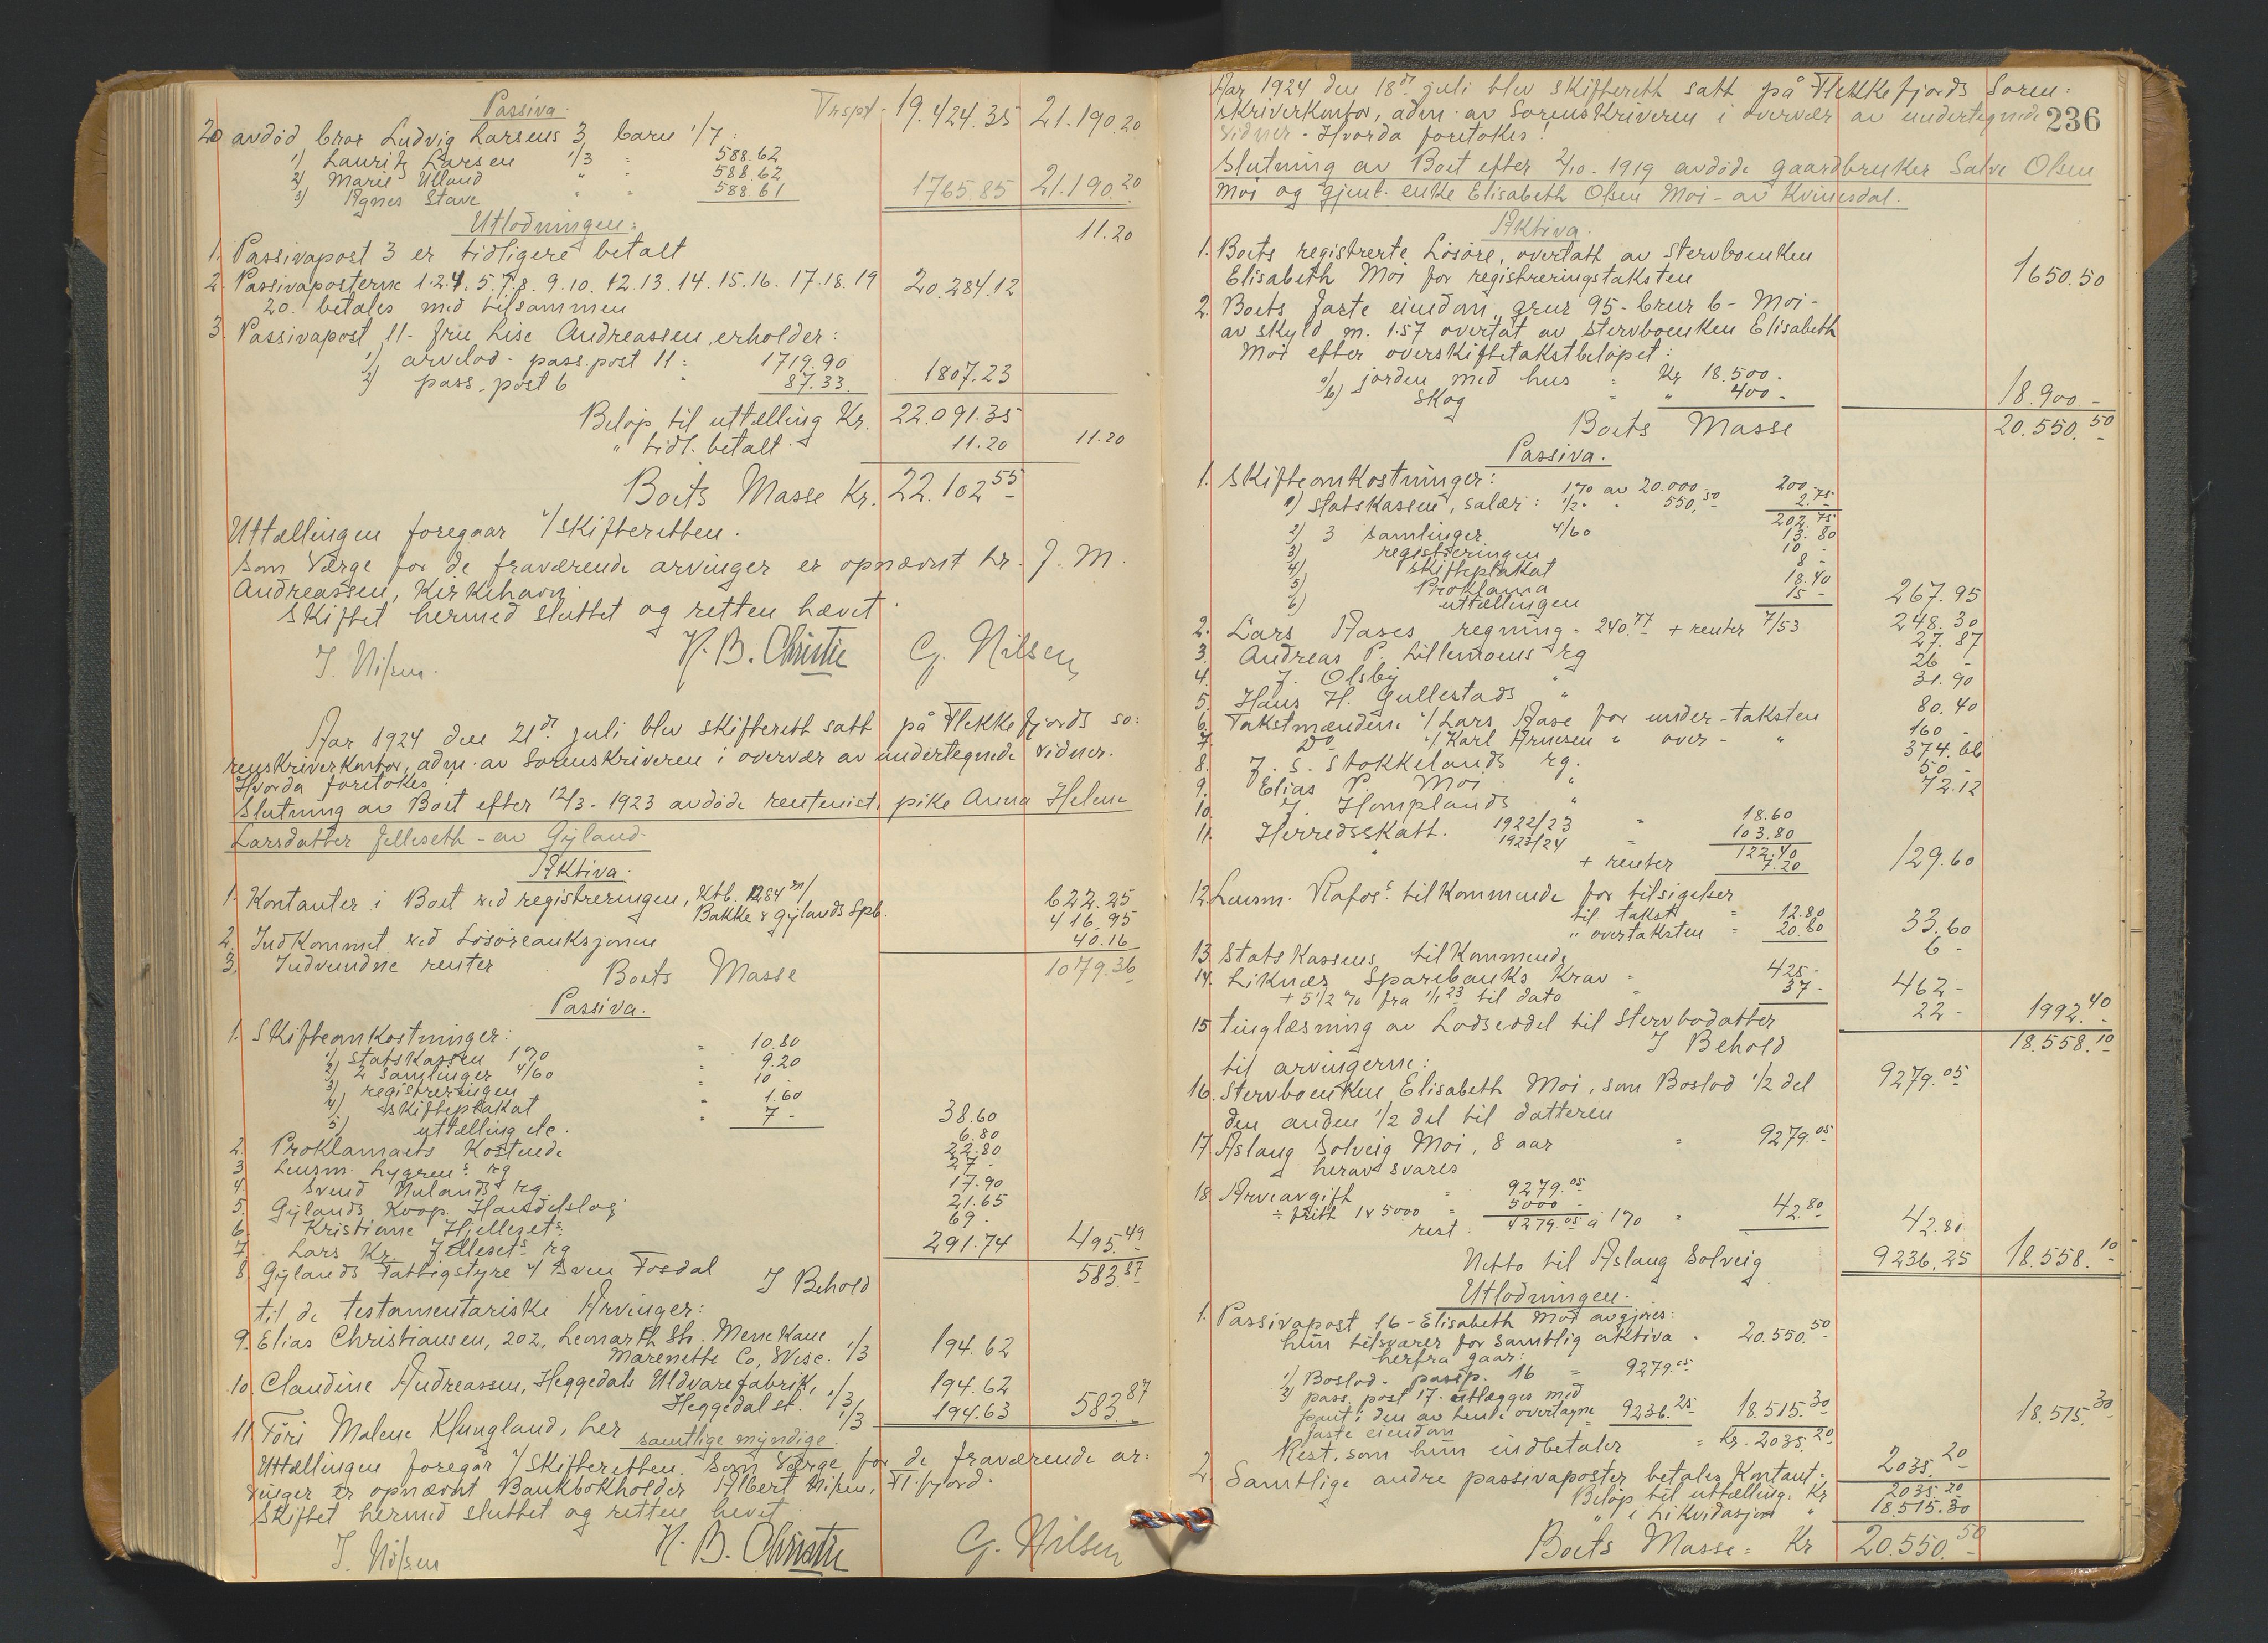 Passiva. Trspt. 19.424.35 21.190.20
20 avdød bror Ludvig Larsens 3 barn 1/7:
1) Lauritz Larsen 1/3 = 588.62
2) Marie Ulland " = 588.62
3) Agnes Stave " = 588.61 1765.85 21.190.20
Utlodningen:
1. Passivapost 3 er tidligere betalt 11.20
2. Passivaposterne 1.2.4.5.7.8.9.10.12.13.14.15.16.17.18.19
20. betales med tilsammen 20.284.12
3. Passivapost 11 - fru Lise Andreassen, erholder:
1) arvelod - pass.post 11 = 1719.90
2) pass.post 6 " 87.33 1807.23
Beløp til uttælling Kr. 22.091.35
" tidl. betalt. 11.20 11.20
Boets Masse Kr. 22.102.55
Uttællingen foregaar v/skifteretten.
Som Værge for de fraværende arvinger er opnævnt hr. J. M.
Andreassen, Kirkehavn.
Skiftet hermed sluttet og retten hævet.
J. Nilsen. H. B. Christie G. Nilsen
Aar 1924 den 21de juli blev skifterett satt på Flekkefjords so:
renskriverkontor, adm. av Sorenskriveren i overvær av undertegnede vidner.
Hvorda foretokes!
Slutning av Boet efter 12/3-1923 avdøde rentenist. pike Anna Helene
Larsdatter Jelleseth - av Gyland.
Aktiva.
1. Kontanter i Boet ved registreringen, Ktb. 1284 m/
Bakke & Gylands Spb. 622.25
2. Indkommet ved Løsøreauksjonen 416.95
3. Indvundne renter 40.16
Boets Masse 1079.36
Passiva.
1. Skifteomkostninger:
1) Statskassen 1% = 10.80
2) 2 Samlinger 4/60 = 9.20
3) registreringen = 10 -
4) skifteplakat " 1.60
5) uttælling etc. " 7 - 38.60
2. Proklamaets Kostende 6.80
3 Lensm. Lygrens rg 22.80
4. Svend Nulands rg 27 -
5. Gylands Koop. Handelslag 17.90
6. Kristiane Hjellesets 21.65
7. Lars Kr. Jellesets rg 69 -
8 Gylands Fattigstyre v/ Sven Fosdal 291.74 495.49
I Behold 583.87
til de testamentariske Arvinger:
9. Elias Christiansen, 202, Leonarth Str. Mene Kaue
Marenette Co, Wisc. 1/3 194.62
10. Claudine Andreassen, Heggedals Uldvarefabrik,
Heggedal st. 1/3 194.62
11 Tori Malene Klungland, her 1/3 194.63 583.87
samtlige myndige.
Uttællingen foregår v/Skifteretten. Som Værge for de fraværende ar:
vinger er opnævnt Bankbokholder Albert Nilsen, Fl.fjord.
Skiftet hermed sluttet og retten hevet.
J. Nilsen H. B. Christie G. Nilsen
236
Aar 1924 den 18de juli blev skifterett satt på Flekkefjords Soren:
skriverkontor, adm. av Sorenskriveren i overvær av undertegnede
vidner. Hvorda foretokes!
Slutning av Boet efter 2/10-1919 avdøde gaardbruker Salve Olsen
Moi og gjenl. enke Elisabeth Olsen Moi - av Kvinesdal.
Aktiva.
1. Boets registrerte Løsøre, overtatt av Stervboenken
Elisabeth Moi for registreringstaksten 1650.50
2. Boets faste eiendom, gnr 95 - brnr 6 - Moi -
av skyld m. 1.57 overtat av stervboenken Elisabeth
Moi efter overskiftetakstbeløpet:
a) jorden med hus = Kr 18.500 -
b) Skog = " 400 - 18.900 -
Boets Masse 20.550.50
Passiva.
1. Skifteomkostninger:
1) Statskassen, salær: 1% av 20.000 - 200 -
1/2 " " 550.50 2.75
202.75
2) 3 Samlinger 4/60 13.80
3) registreringen 10 -
4) skifteplakat 8 -
5) Proklama 18.40
6) uttællingen 15 - 267.95
2. Lars Aases regning = 240.77 + renter 7/53 248.30
3. Andreas P. Lillemoens rg 27.87
4. J. Olsby " 26 -
5. Hans H. Gullestads " 31.90
6. Takstmændene v/ Lars Aase for under-taksten 80.40
7. Do v/ Karl Arnesen " over - " 160 -
8. J. S. Stokkelands rg. 374.66
9. Elias P. Moi " 50 -
10. J. Homplands " 72.12
11. Herredsskatt. 1922/23 " 18.60
" 1923/24 103.80
122.40
+ renter 7.20 129.60
12. Lensm. Rafoss tilkommende for tilsigelser
til takst = 12.80
" overtaksten = 20.80 33.60
13 Statskassens tilkommende 6 -
14. Liknes Sparebanks Krav = 425 -
+ 5 1/2 % fra 1/1 23 til dato " 37 - 462 -
15 tinglæsning av Lodseddel til Stervbodatter 22 - 1992.40
I Behold 18.558.10
til arvingerne:
16. Stervboenken Elisabeth Moi, som Boslod 1/2 del 9279.05
den anden 1/2 del til datteren
17. Aslaug Solveig Moi, 8 aar = 9279.05
herav svares
18. Arveavgift = 9279.05
÷ fritt 1 x 5000 = 5000 -
rest: 4279.05 à 1% = 42.80 42.80
Netto til Aslaug Solveig 9236.25 18.558.10
Utlodningen.
1. Passivapost 16 - Elisabeth Moi avgjøres:
hun tilsvarer for samtlig aktiva. 20.550.50
herfra gaar:
1) Boslod - passp. 16 = 9279.05
2) pass. post 17. utlægges med
pant i den av hende overtagne 9236.25 18.515.30 18.515.30
faste eiendom
Rest. som hun indbetaler = Kr. 2035.20
2. Samtlige andre passivaposter betales Kontant. 2035.20
Beløp til uttælling. Kr 2035.20
" i Likvidasjon " 18.515.30
Boets Masse = Kr 20.550.50